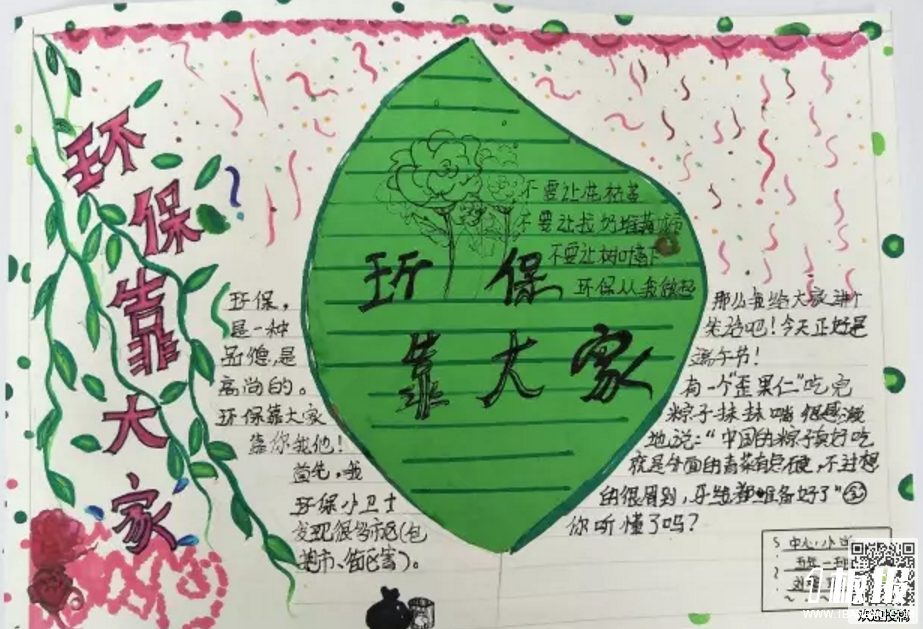 环保靠大家
不要让花枯萎
不要让
不要让树
环保从我做起
环保
靠大家
环保，
是一种
品德，是
高尚的。
环保靠大家
靠你我他！
首先，我
环保小卫士
发现很多市区（包
菜市、街区害）。
那么我给大家讲个
笑话吧！今天正好是
端午节！
有一个“歪果仁”吃完
粽子抹抹嘴很感激
地说：“中国的粽子真好吃
就是外面的青菜有点硬，不过想
的很周到，牙线都准备好了”
你听懂了吗？
中心小学
班级一班
欢迎投稿